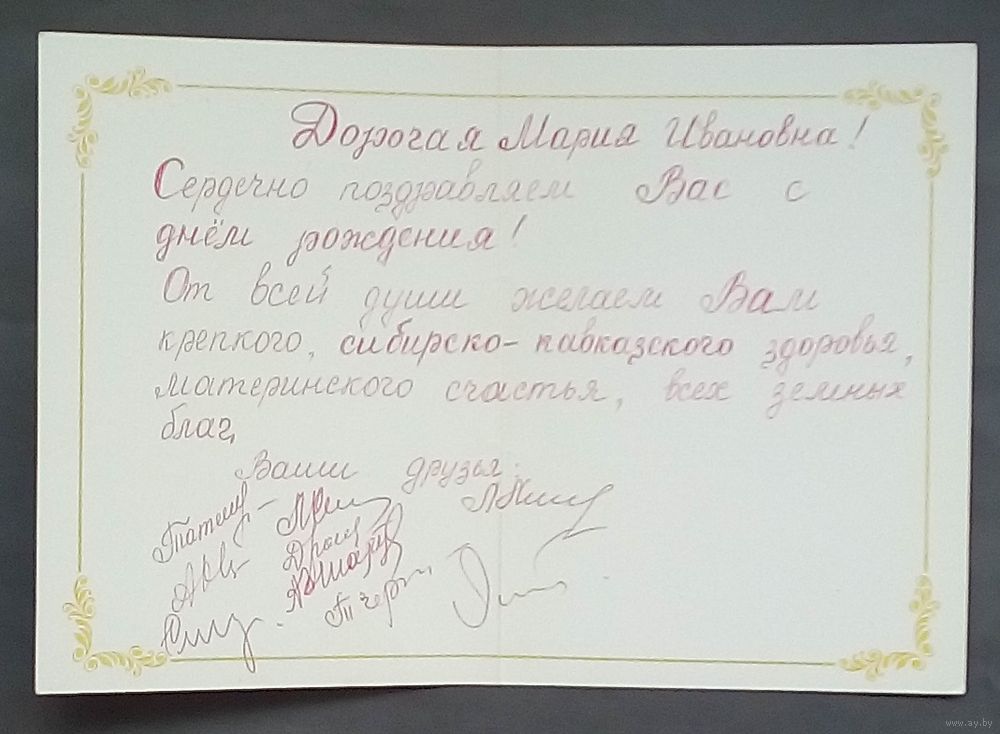 Дорогая Мария Ивановна!
Сердечно поздравляем Вас с
днём рождения!
От всей души желаем Вам
крепкого, сибирско-кавказского здоровья,
материнского счастья, всех земных
благ.
Ваши друзья:
www.ay.by